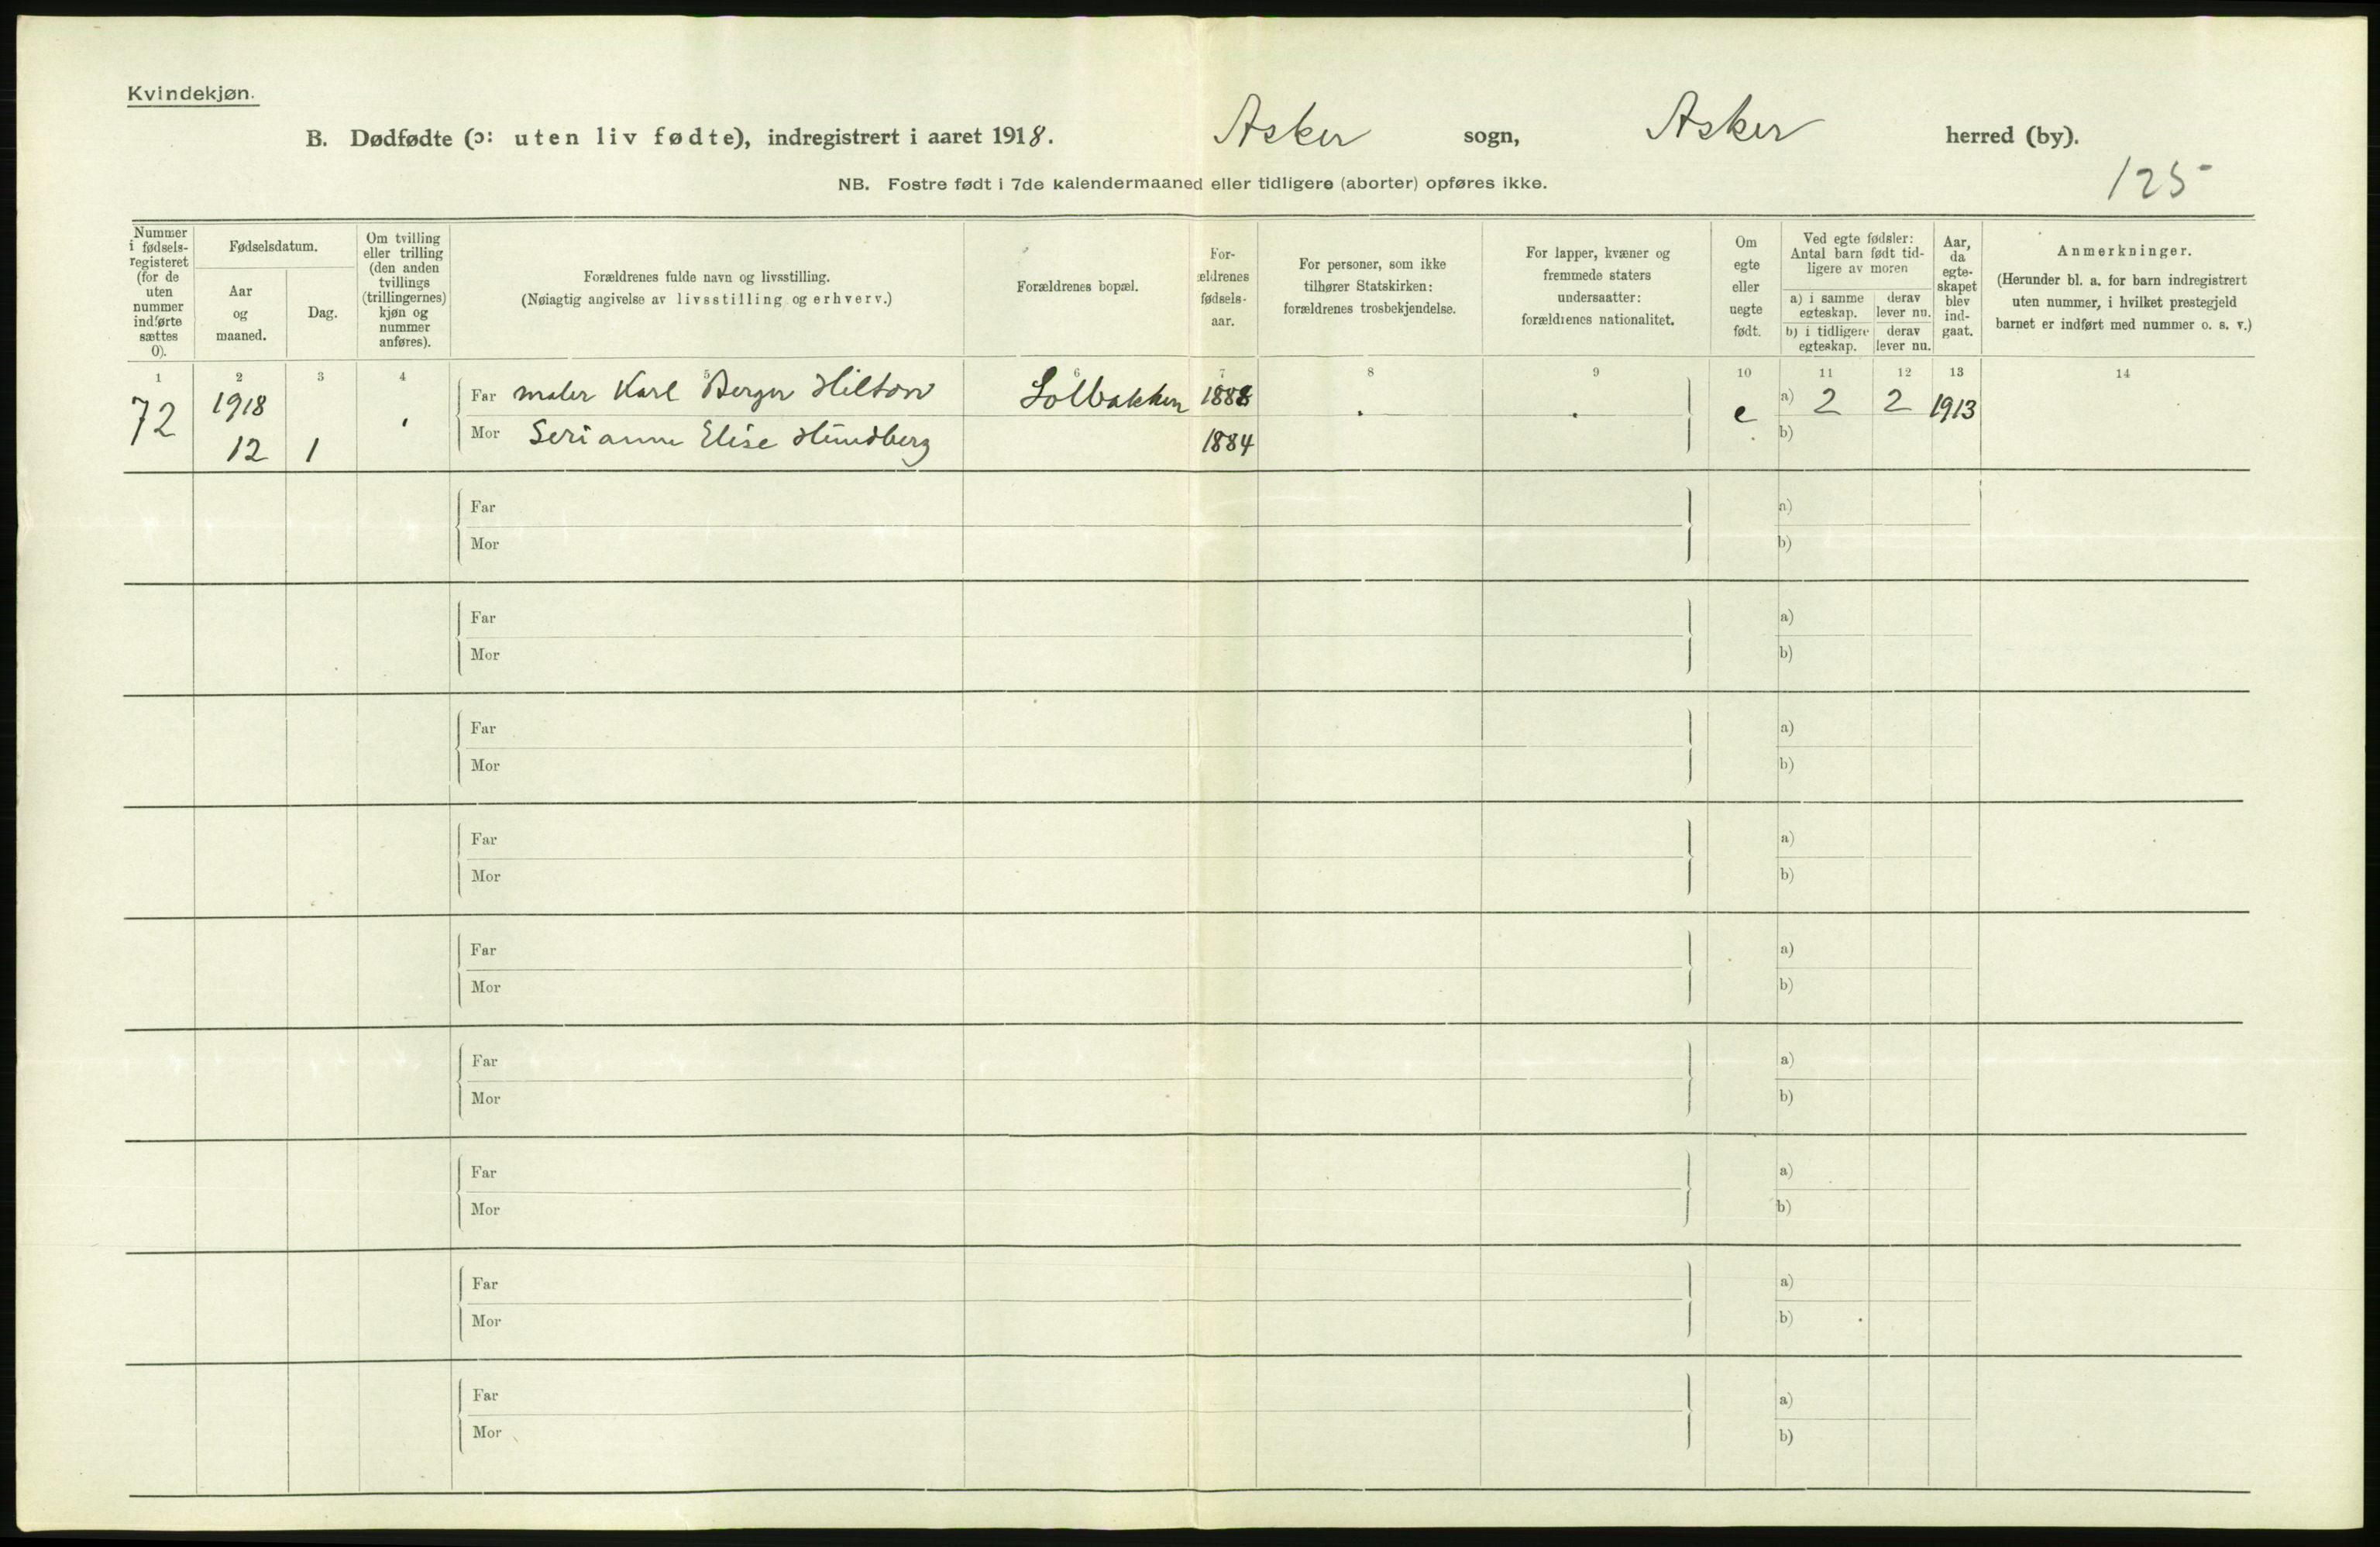 Kvindekjøn.
B. Dødfødte (ɔ: uten liv fødte), indregistrert i aaret 1918. Asker sogn, Asker herred (by).
125
NB. Fostre født i 7de kalendermaaned eller tidligere (aborter) opføres ikke.
Nummer i fødsels-registeret (for de uten nummer indførte sættes 0).
Fødselsdatum.
Aar og maaned.
Dag.
Om tvilling eller trilling (den anden tvillings (trillingernes) kjøn og nummer anføres).
Forældrenes fulde navn og livsstilling.
(Nøiagtig angivelse av livsstilling og erhverv.)
Forældrenes bopæl.
For-ældrenes fødsels-aar.
For personer, som ikke tilhører Statskirken: forældrenes trosbekjendelse.
For lapper, kvæner og fremmede staters undersaatter: forældrenes nationalitet.
Om egte eller uegte født.
Ved egte fødsler: Antal barn født tid-ligere av moren
a) i samme egteskap. derav lever nu.
b) i tidligere egteskap. derav lever nu.
Aar, da egte-skapet blev ind-gaat.
Anmerkninger.
(Herunder bl. a. for barn indregistrert uten nummer, i hvilket prestegjeld barnet er indført med nummer o. s. v.)
1 2 3 4 5 6 7 8 9 10 11 12 13 14
72 1918 Far maler Karl Berger Hilton Solbakken 1888 e a) 2 2 1913
12 1 Mor Elise 1884 b)
Far a)
Mor b)
Far a)
Mor b)
Far a)
Mor b)
Far a)
Mor b)
Far a)
Mor b)
Far a)
Mor b)
Far a)
Mor b)
Far a)
Mor b)
Far a)
Mor b)